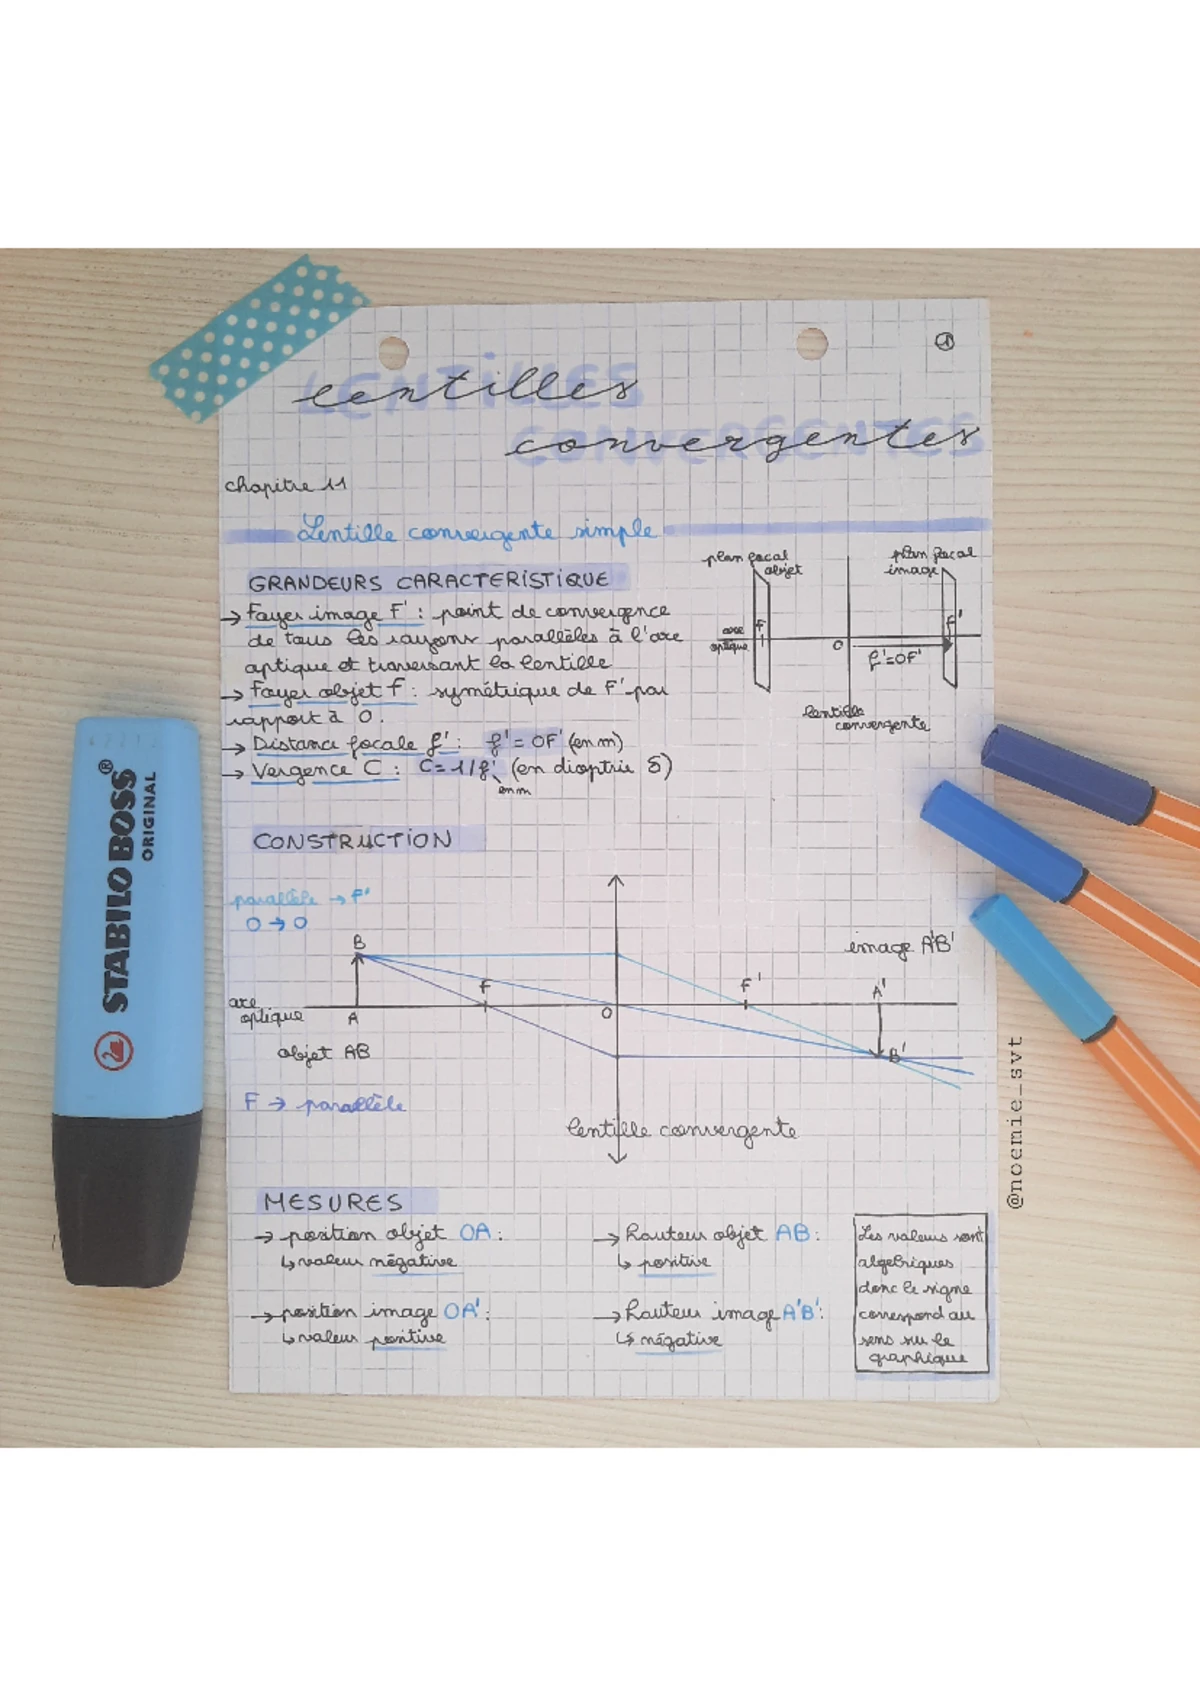 1
LENTILLES
lentilles
CONVERGENTES
convergentes
chapitre 11
Lentille convergente simple
GRANDEURS CARACTERISTIQUE
→ Foyer image F' : point de convergence
de tous les rayons parallèles à l'axe
optique et traversant la lentille
→ Foyer objet f : symétrique de F' par
rapport à O.
→ Distance focale f' : f' = OF' (en m)
→ Vergence C : C = 1/f' (en dioptrie δ)
en m
plan focal
objet
plan focal
image
axe
optique
F
O
F'
f'=OF'
lentille
convergente
CONSTRUCTION
parallèle → F'
O → O
B
image A'B'
F
F'
A'
axe
optique
A
O
objet AB
B'
F → parallèle
lentille convergente
MESURES
→ position objet OA :
↳ valeur négative
→ position image OA' :
↳ valeur positive
→ hauteur objet AB :
↳ positive
→ hauteur image A'B' :
↳ négative
Les valeurs sont
algebriques
donc le signe
correspond au
sens sur le
graphique
STABILO BOSS®
ORIGINAL
@noemie_svt